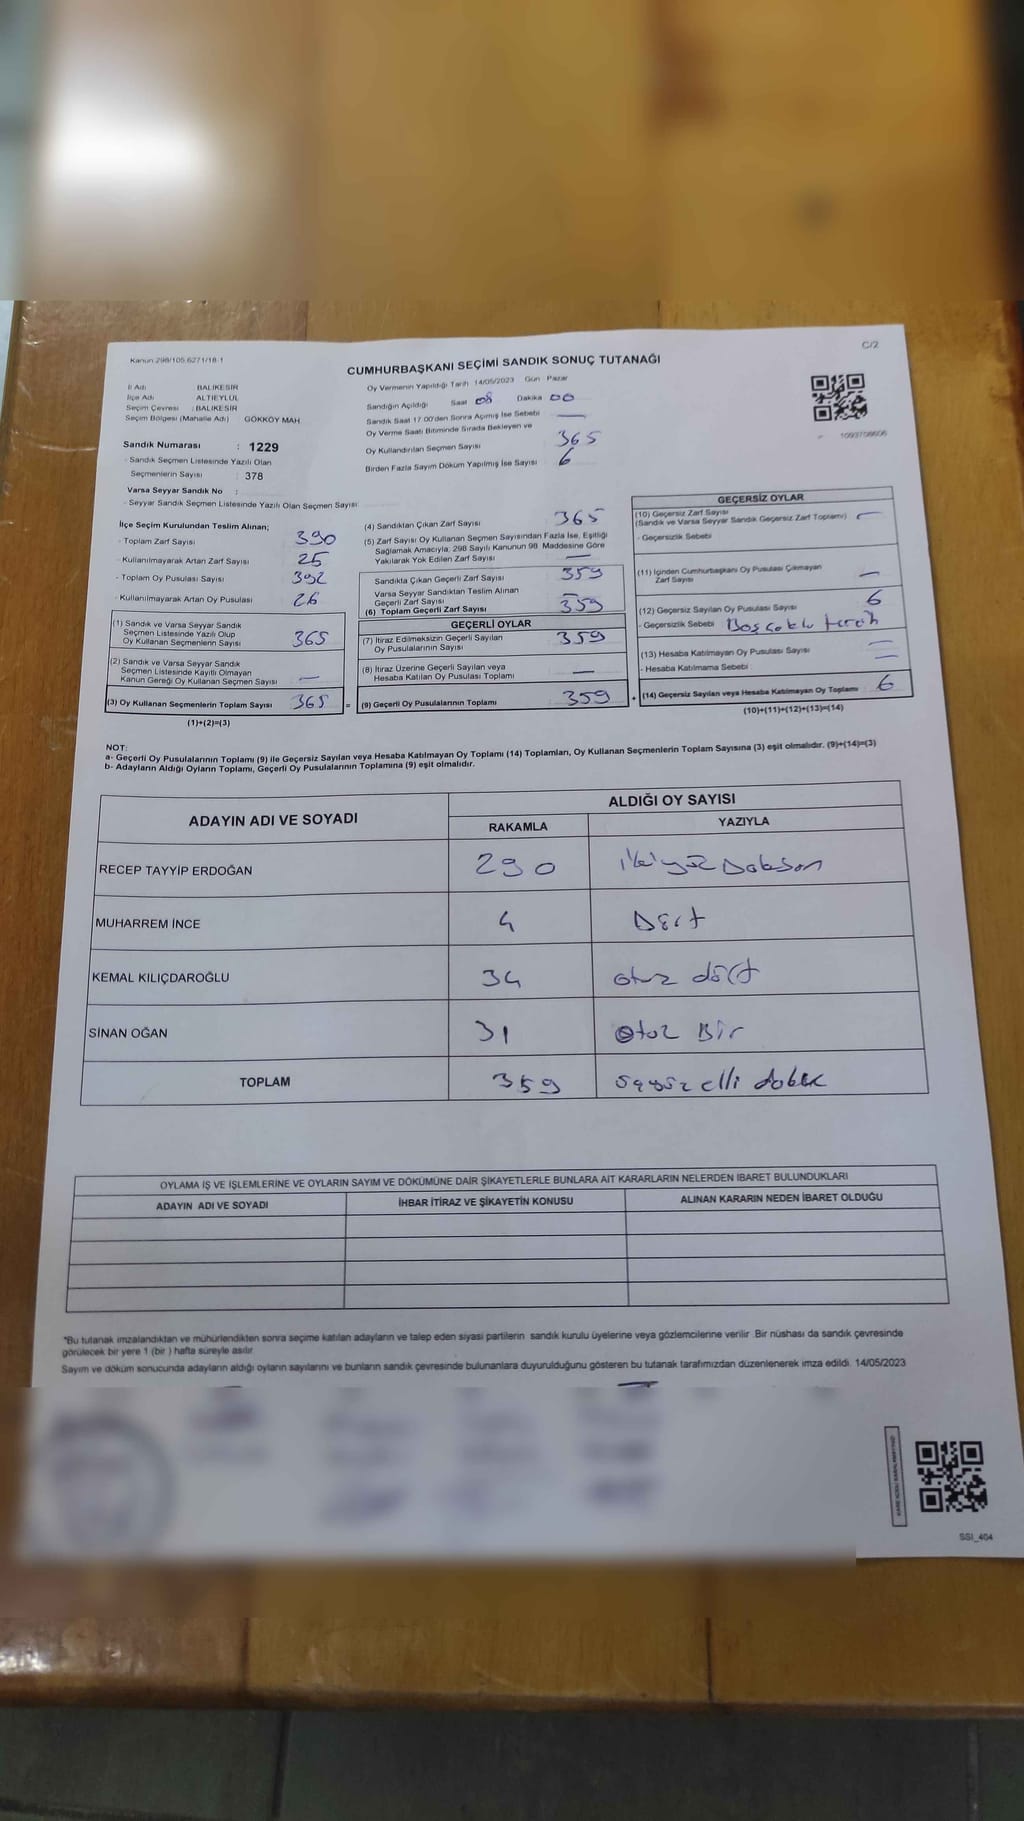 Kanun:298/105,6271/18.1
C/2
CUMHURBAŞKANI SEÇİMİ SANDIK SONUÇ TUTANAĞI
İl Adı BALIKESİR
İlçe Adı ALTIEYLÜL
Seçim Çevresi : BALIKESİR
Seçim Bölgesi (Mahalle Adı) GÖKKÖY MAH.
Sandık Numarası : 1229
- Sandık Seçmen Listesinde Yazılı Olan
Seçmenlerin Sayısı : 378
Varsa Seyyar Sandık No :
- Seyyar Sandık Seçmen Listesinde Yazılı Olan Seçmen Sayısı:
Oy Vermenin Yapıldığı Tarih 14/05/2023 Gün Pazar
Sandığın Açıldığı Saat 08 Dakika 00
Sandık Saat 17.00'den Sonra Açımış İse Sebebi —
Oy Verme Saati Bitiminde Sırada Bekleyen ve
Oy Kullandırılan Seçmen Sayısı 365
Birden Fazla Sayım Döküm Yapılmış İse Sayısı 6
1093708606
İlçe Seçim Kurulundan Teslim Alınan;
- Toplam Zarf Sayısı 390
- Kullanılmayarak Artan Zarf Sayısı 25
- Toplam Oy Pusulası Sayısı 392
- Kullanılmayarak Artan Oy Pusulası 26
(1) Sandık ve Varsa Seyyar Sandık
Seçmen Listesinde Yazılı Olup
Oy Kullanan Seçmenlerin Sayısı 365
(2) Sandık ve Varsa Seyyar Sandık
Seçmen Listesinde Kayıtlı Olmayan
Kanun Gereği Oy Kullanan Seçmen Sayısı —
(3) Oy Kullanan Seçmenlerin Toplam Sayısı 365 =
(1)+(2)=(3)
(4) Sandıktan Çıkan Zarf Sayısı 365
(5) Zarf Sayısı Oy Kullanan Seçmen Sayısından Fazla İse, Eşitliği
Sağlamak Amacıyla, 298 Sayılı Kanunun 98. Maddesine Göre
Yakılarak Yok Edilen Zarf Sayısı —
Sandıkta Çıkan Geçerli Zarf Sayısı 359
Varsa Seyyar Sandıktan Teslim Alınan
Geçerli Zarf Sayısı —
(6) Toplam Geçerli Zarf Sayısı 359
GEÇERLİ OYLAR
(7) İtiraz Edilmeksizin Geçerli Sayılan
Oy Pusulalarının Sayısı 359
(8) İtiraz Üzerine Geçerli Sayılan veya
Hesaba Katılan Oy Pusulası Toplamı —
(9) Geçerli Oy Pusulalarının Toplamı 359 +
GEÇERSİZ OYLAR
(10) Geçersiz Zarf Sayısı
(Sandık ve Varsa Seyyar Sandık Geçersiz Zarf Toplamı) —
- Geçersizlik Sebebi
(11) İçinden Cumhurbaşkanı Oy Pusulası Çıkmayan
Zarf Sayısı —
(12) Geçersiz Sayılan Oy Pusulası Sayısı 6
- Geçersizlik Sebebi
(13) Hesaba Katılmayan Oy Pusulası Sayısı —
- Hesaba Katılmama Sebebi : —
(14) Geçersiz Sayılan veya Hesaba Katılmayan Oy Toplamı 6
(10)+(11)+(12)+(13)=(14)
NOT:
a- Geçerli Oy Pusulalarının Toplamı (9) ile Geçersiz Sayılan veya Hesaba Katılmayan Oy Toplamı (14) Toplamları, Oy Kullanan Seçmenlerin Toplam Sayısına (3) eşit olmalıdır. (9)+(14)=(3)
b- Adayların Aldığı Oyların Toplamı, Geçerli Oy Pusulalarının Toplamına (9) eşit olmalıdır.
ADAYIN ADI VE SOYADI
ALDIĞI OY SAYISI
RAKAMLA YAZIYLA
RECEP TAYYİP ERDOĞAN 290 ikiyüz Doksan
MUHARREM İNCE 4 Dört
KEMAL KILIÇDAROĞLU 34 otuz dört
SİNAN OĞAN 31 otuz Bir
TOPLAM 359 elli
OYLAMA İŞ VE İŞLEMLERİNE VE OYLARIN SAYIM VE DÖKÜMÜNE DAİR ŞİKAYETLERLE BUNLARA AİT KARARLARIN NELERDEN İBARET BULUNDUKLARI
ADAYIN ADI VE SOYADI İHBAR İTİRAZ VE ŞİKAYETİN KONUSU ALINAN KARARIN NEDEN İBARET OLDUĞU
"Bu tutanak imzalandıktan ve mühürlendikten sonra seçime katılan adayların ve talep eden siyasi partilerin sandık kurulu üyelerine veya gözlemcilerine verilir. Bir nüshası da sandık çevresinde
görülecek bir yere 1 (bir ) hafta süreyle asılır
Sayım ve döküm sonucunda adayların aldığı oyların sayılarını ve bunların sandık çevresinde bulunanlara duyurulduğunu gösteren bu tutanak tarafımızdan düzenlenerek imza edildi. 14/05/2023
SSI_404